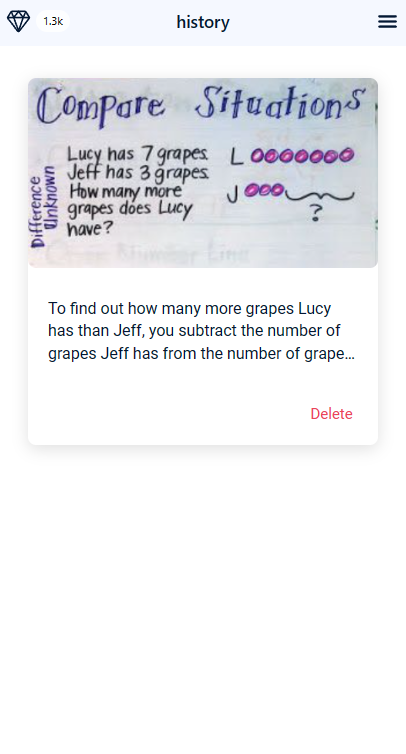 1.3k
history
Compare Situations
Difference
Unknown
Lucy has 7 grapes.
Jeff has 3 grapes.
How many more
grapes does Lucy
have?
L
J
?
To find out how many more grapes Lucy
has than Jeff, you subtract the number of
grapes Jeff has from the number of grape…
Delete